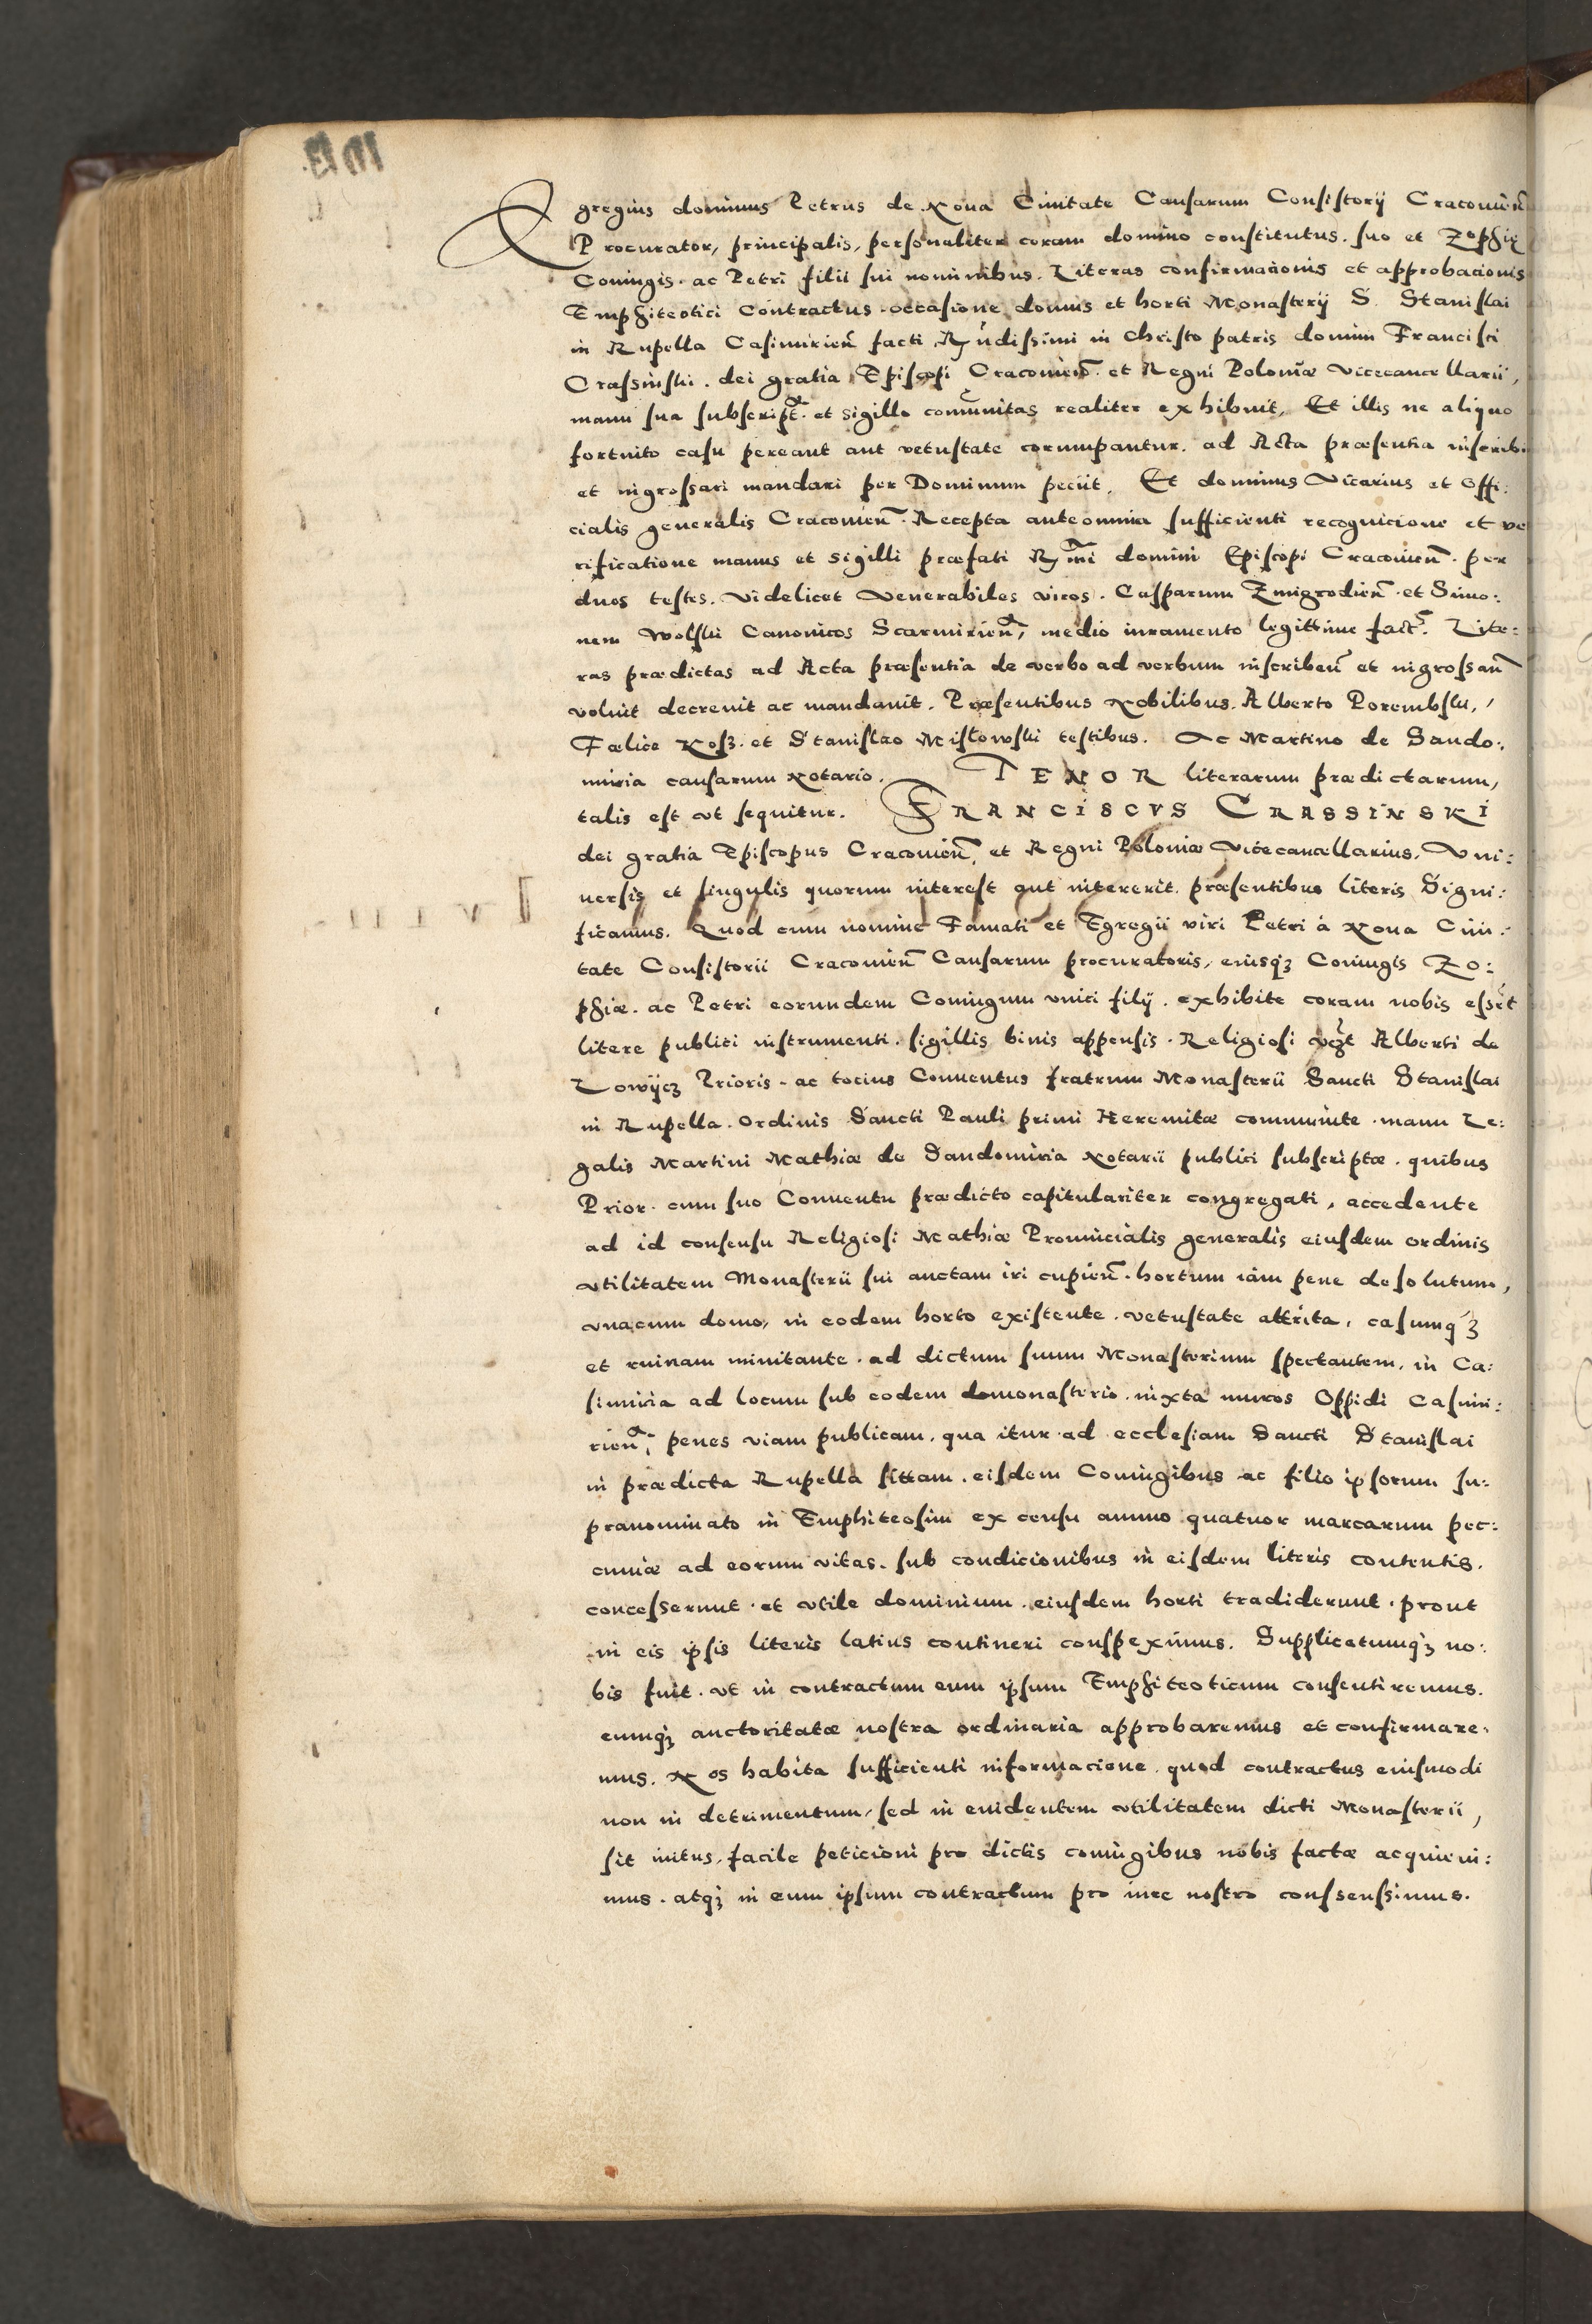 Egregius dominus Petrus de Nova Civitate Causarum Consistorij Cracovień
Procurator, principalis, personaliter coram domino constitutus. suo et Zophię
Coniugis. ac Petri filii sui nominibus. Literas confirmacionis et approbacionis
Emphiteotici Contractus occasione domus et horti Monasterij S. Stanislai
in Rupella Casimirień facti Rv̄ndissimi in christo patris domini Francisci
Crassinski. dei gratia Episcopi Cracovień. et Regni Poloniæ vicecancellarii,
manu sua subscript̃. et sigillo com̃unitas realiter exhibuit, Et illis ne aliquo
fortuito casu pereant aut vetustate corrumpantur. ad Acta præsentia inscribi
et ingrossari mandari per Dominum peciit. Et dominus Vicarius et Offi:
cialis generalis Cracovień. Recepta anteomnia sufficienti recognicione et ve
rificatione manus et sigilli præfati R̃mi domini Episcopi Cracovień. per
duos testes. videlicet Venerabiles viros. Casparum Zmigrodień. et Simo:
nem Wolski Canonicos Scarmirień, medio iuramento legittime fact̃. Lite:
ras prædictas ad Acta præsentia de verbo ad verbum inscribeñ et ingrossañ
voluit decrevit ac mandavit. Præsentibus Nobilibus. Alberto Porembski,
Fœlice Kosz. et Stanislao Mislowski testibus. Ac Martino de Sando:
miria causarum Notario. TENOR literarum prædictarum,
talis est ut sequitur. FRANCISCVS CRASSINSKI
dei gratia Episcopus Cracovień, et Regni Poloniæ Vicecancellarius. Vni:
versis et singulis quorum interest aut intererit. præsentibus literis Signi:
ficamus. Quod cum nomine Famati et Egregii viri Petri à Nova Civi:
tate Consistorii Cracovień Causarum procuratoris, eiusqȝ Coniugis Zo:
phiæ. ac Petri eorundem Coniugum unici filij. exhibite coram nobis essẽt
litere publici instrumenti. sigillis binis appensis. Religiosi vcȝt Alberti de
Lowijcz Prioris. ac tocius Conventus fratrum Monasterii Sancti Stanislai
in Rupella. Ordinis Sancti Pauli primi Heremitæ communite. manu Le:
galis Martini Mathiæ de Sandomiria Notarii publici subscriptæ. quibus
Prior. cum suo Conventu prædicto capitulariter congregati, accedente
ad id consensu Religiosi Mathiæ Provincialis generalis eiusdem ordinis
utilitatem Monasterii sui auctam iri cupień. hortum iam pene desolutum,
vnacum domo, in eodem horto existente. vetustate attrita, casumqȝ
et ruinam minitante. ad dictum suum Monasterium spectantem. in Ca:
simiria ad locum sub eodem domonasterio. iuxta muros Oppidi Casimi:
rień, penes viam publicam. qua itur ad ecclesiam Sancti Stanislai
in prædicta Rupella sittam. eisdem Coniugibus ac filio ipsorum su:
pranominato in Emphiteosim ex censu annuo quatuor marcarum pec:
cuniæ ad eorum vitas. sub condicionibus in eisdem literis contentis.
concesserunt. et utile dominium. eiusdem horti tradiderunt. prout
in eis ipsis literis latius contineri conspeximus. Supplicatumqȝ no:
bis fuit. ut in contractum eum ipsum Emphiteoticum consentiremus.
eumqȝ auctoritatæ nostra ordinaria approbaremus et confirmare:
mus. Nos habita sufficienti informacione. quod contractus eiusmodi
non in detrimentum, sed in evidentem utilitatem dicti Monasterii,
sit initus, facile peticioni pro dictis coniugibus nobis factæ acquievi:
mus. atqȝ in eum ipsum contractum pro iure nostro conssenssimus.